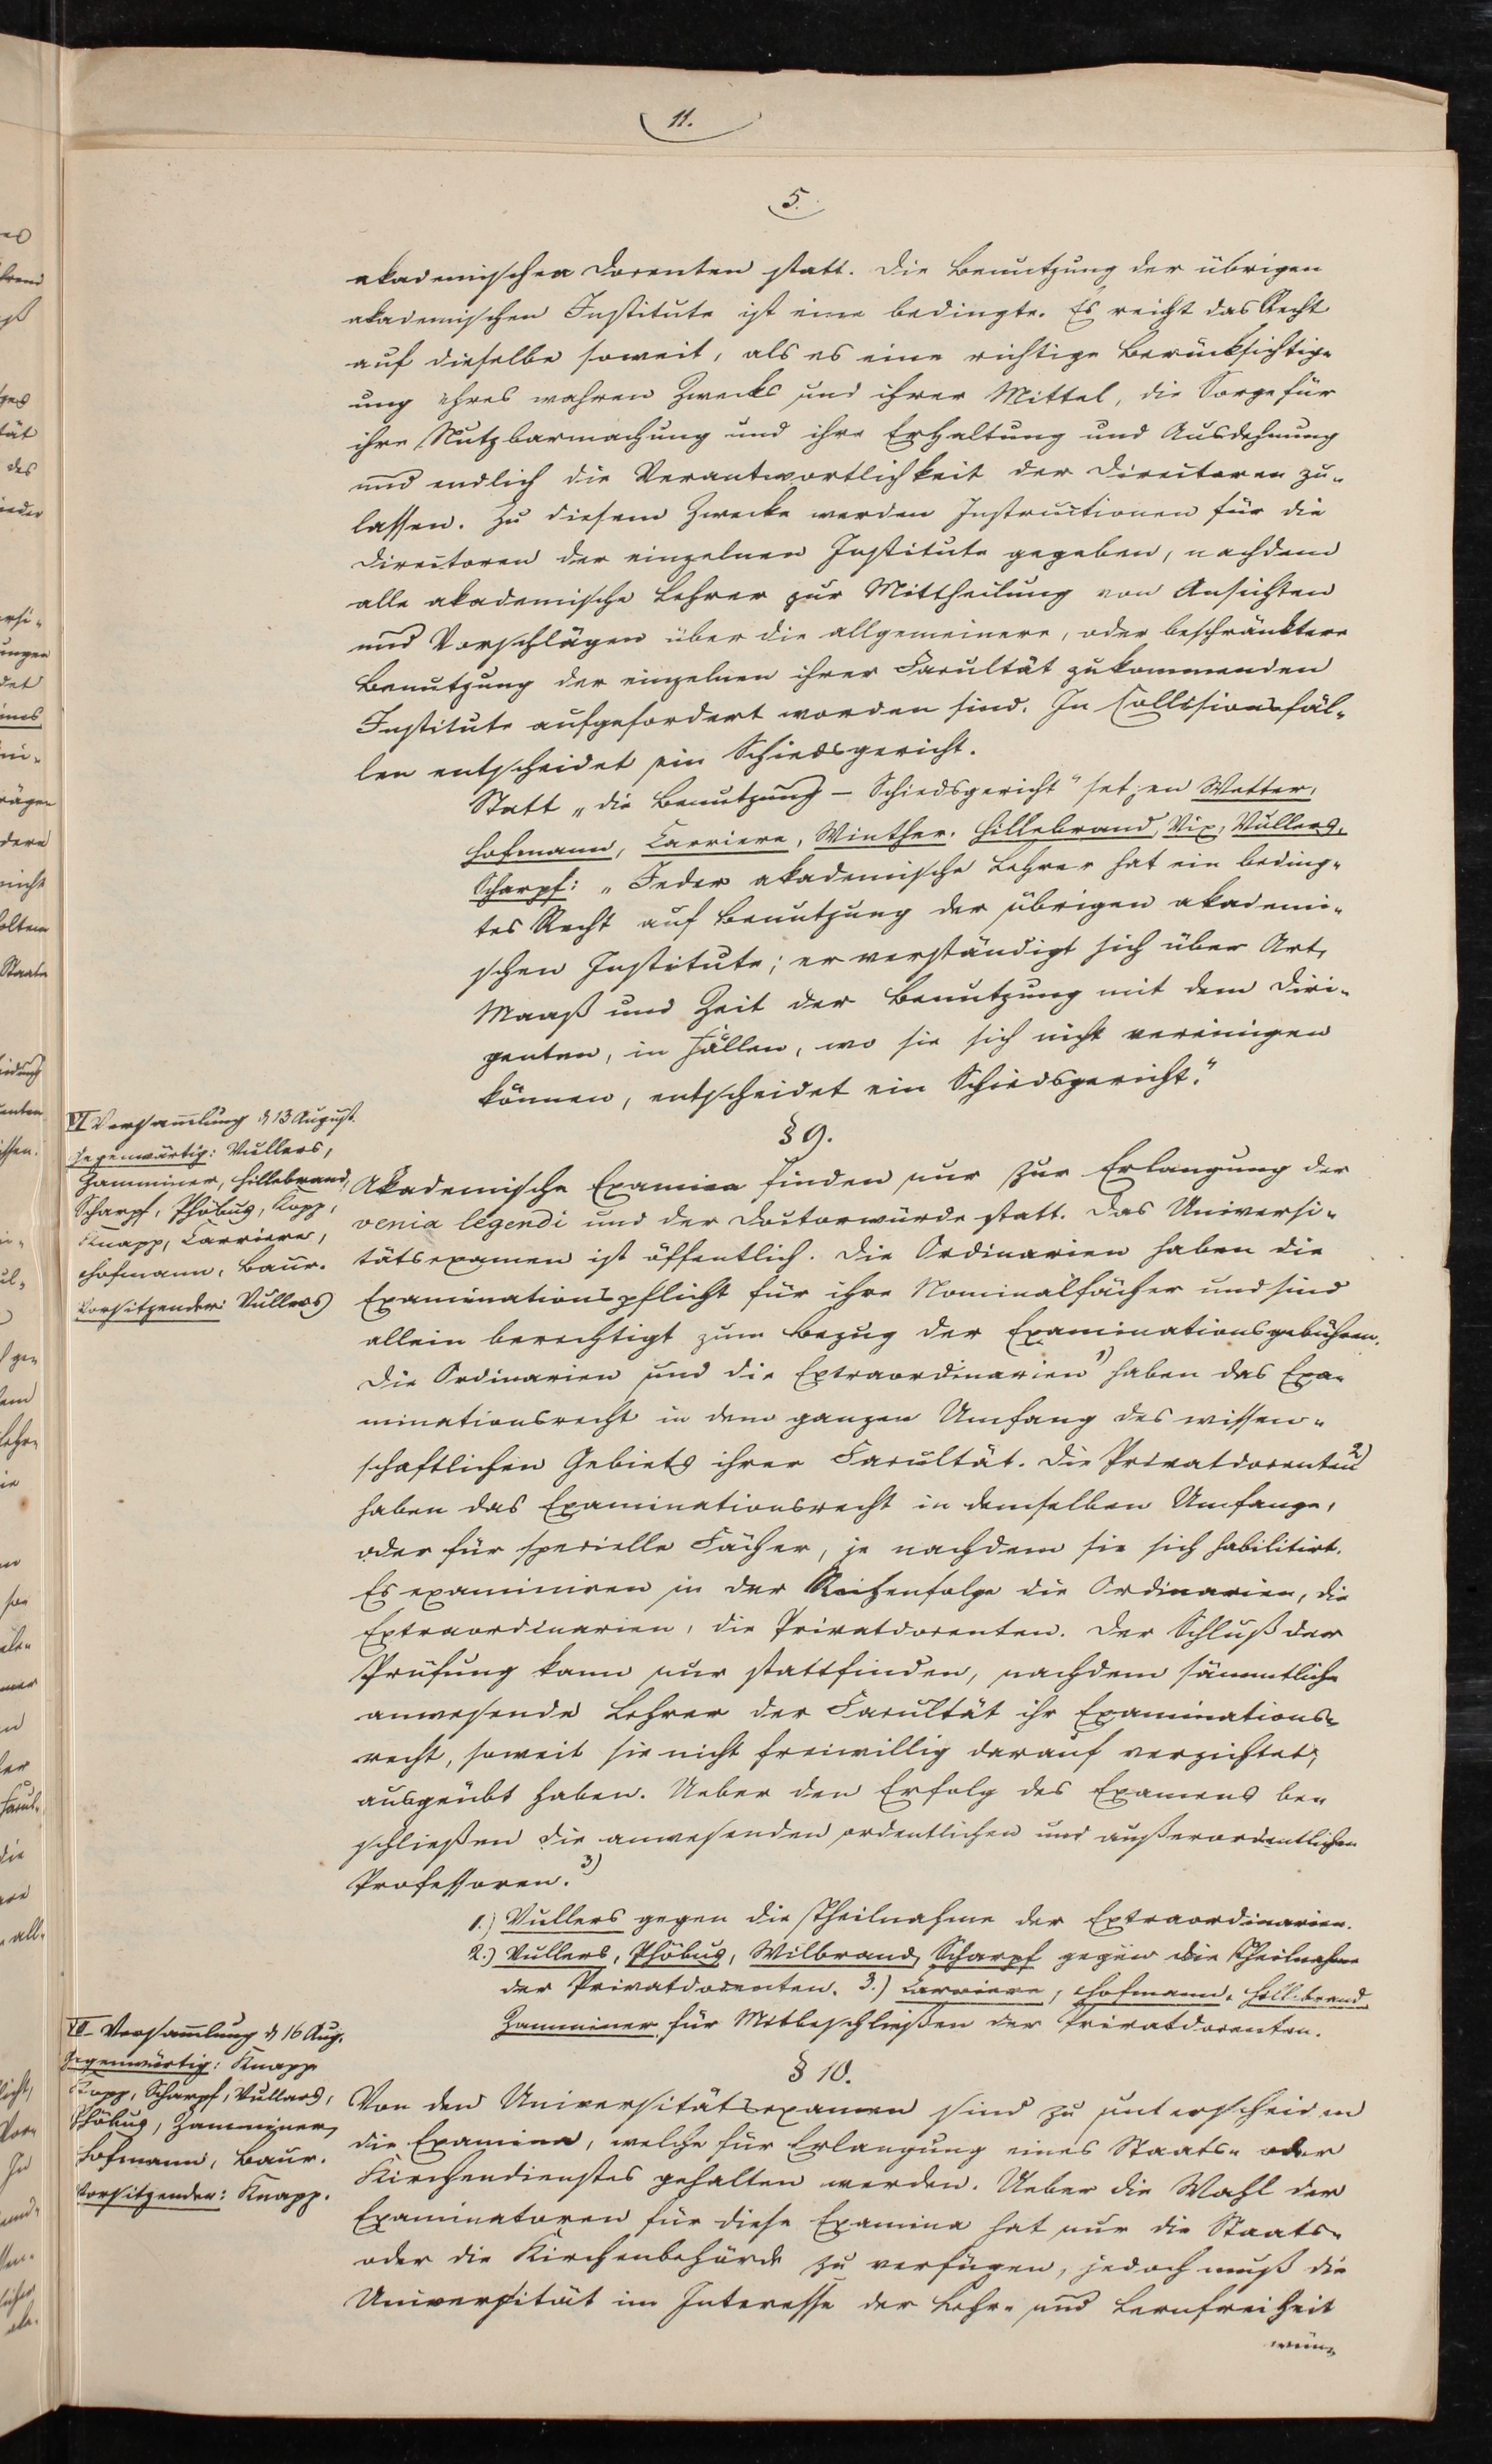 11.
5.
akademischen Docenten statt. Die Benutzung der übrigen
akademischen Institute ist eine bedingte. Es reicht das Recht
auf dieselbe soweit, als es eine richtige Berücksichtig-
ung ihres wahren Zwecks und ihrer Mittel, die Sorge für
ihre Nutzbarmachung und ihre Erhaltung und Ausdehnung
und endlich die Verantwortlichkeit der Directoren zu-
lassen. Zu diesem Zwecke werden Instructionen für die
Directoren der einzelnen Institute gegeben, nachdem
alle akademische Lehrer zur Mittheilung von Ansichten
und Vorschlägen über die allgemeinere, oder beschränktere
Benutzung der einzelnen ihrer Facultät zukommenden
Institute aufgefordert worden sind. In Collisionsfäl-
len entscheidet ein Schiedsgericht.
Statt „die Benutzung – Schiedsgericht" setzen Wetter,
Hofmann, Carriere, Winther, Hillebrand, Vix, Vullers,
Scharpf: „Jeder akademische Lehrer hat ein beding-
tes Recht auf Benutzung der übrigen akademi-
schen Institute; er verständigt sich über Art,
Maaß und Zeit der Benutzung mit dem Diri-
genten, in Fällen, wo sie sich nicht vereinigen
können, entscheidet ein Schiedsgericht."
VI Versammlung d. 13 August.
Gegenwärtig: Vullers,
Zamminer, Hillebrand,
Scharpf, Phöbus, Kopp,
Knapp, Carriere,
Hofmann, Baur.
Vorsitzender: Vullers
§ 9.
Akademische Examina finden nur zur Erlangung der
venia legendi und der Doctorwürde statt. Das Universi-
tätsexamen ist öffentlich. Die Ordinarien haben die
Examinationspflicht für ihre Nominalfächer und sind
allein berechtigt zum Bezug der Examinationsgebühren.
Die Ordinarien und die Extraordinarien 1) haben das Exa-
minationsrecht in dem ganzen Umfang des wissen-
schaftlichen Gebiets ihrer Facultät. Die Privatdocenten 2)
haben das Examinationsrecht in demselben Umfange,
oder für specielle Fächer, je nachdem sie sich habilitirt.
Es examiniren in der Reihenfolge die Ordinarien, die
Extraordinarien, die Privatdocenten. Der Schluß der
Prüfung kann nur stattfinden, nachdem sämmtliche
anwesende Lehrer der Facultät ihr Examinations-
recht, soweit sie nicht freiwillig darauf verzichtet,
ausgeübt haben. Ueber den Erfolg des Examens be-
schließen die anwesenden ordentlichen und außerordentlichen
Professoren. 3)
1.) Vullers gegen die Theilnahme der Extraordinarien.
2.) Vullers, Phöbus, Wilbrand, Scharpf gegen die Theilnahme
der Privatdocenten. 3.) Carriere, Hofmann, Hillebrand
Zamminer für Mitbeschließen der Privatdocenten.
VII Versammlung d. 16 Aug.
Gegenwärtig: Knapp
Kopp, Scharpf, Vullers,
Phöbus, Zamminer,
Hofmann, Baur.
Vorsitzender: Knapp.
§ 10.
Von den Universitätsexamen sind zu unterscheiden
die Examina, welche für Erlangung eines Staats- oder
Kirchendienstes gehalten werden. Ueber die Wahl der
Examinatoren für diese Examina hat nur die Staats-
oder die Kirchenbehörde zu verfügen, jedoch muß die
Universität im Interesse der Lehr- und Lernfreiheit
wün-